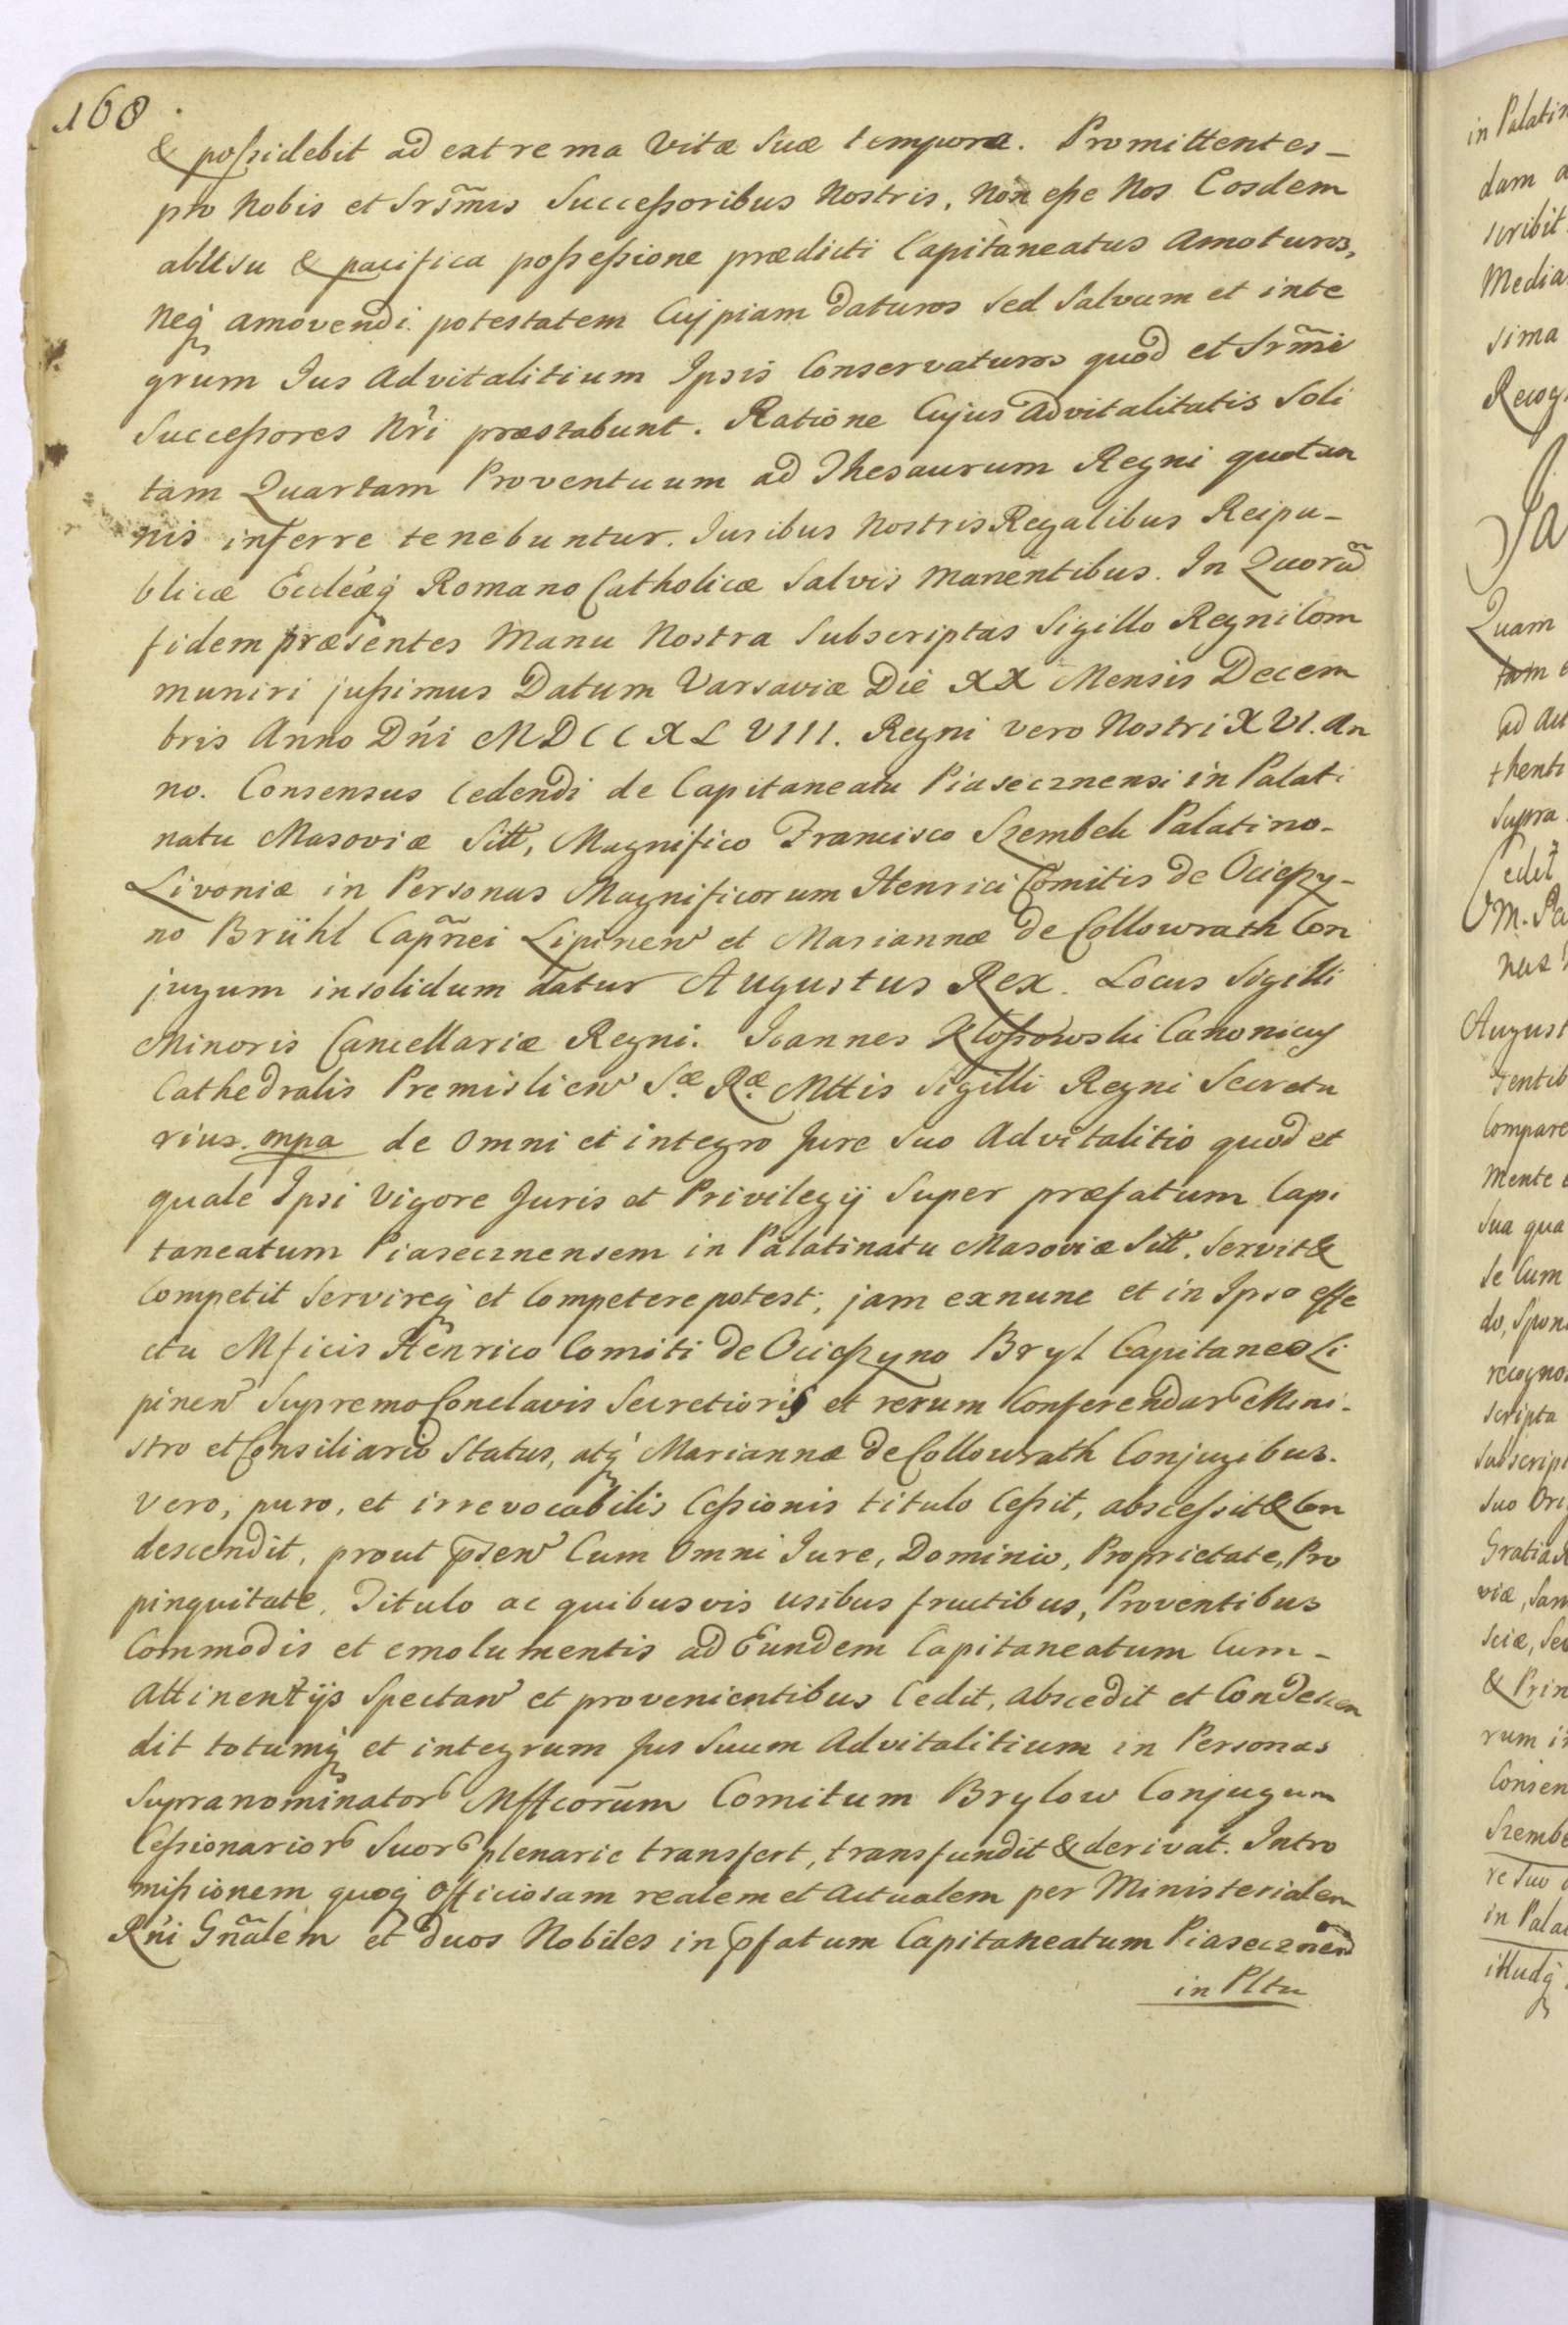 168.
& poßidebit ad extrema Vitæ Suæ tempora. Promittentes_
pro Nobis et Srsm̃is Succeßoribus Nostris, Non eße Nos Eosdem
ab Usu & pacifica poßeßione prædicti Capitaneatus Amoturos,
Neq́ amovendi potestatem Cujpiam daturos Sed Salvum et inte
grum Jus Advitalitium Ipsis Conservaturos quod et Srm̃i
Succeßores Nr̃i præstabunt. Ratione Cujus Advitalitatis Soli
tam Quartam Proventuum ad Thesaurum Regni quotan
nis inferre tenebuntur. Juribus Nostris Regalibus Reipu_
blicæ Eccleæq́ Romano Catholicæ Salvis Manentibus. In Quorũ
fidem præsentes Manu Nostra Subscriptas Sigillo Regni Com
muniri jußimus Datum Varsaviæ Die XX Mensis Decem
bris Anno Dńi MDCCXLVIII. Regni vero Nostri XVI. An
no. Consensus Cedendi de Capitaneatu Piasecznensi in Palati
natu Masoviæ Sitt, Magnifico Francisco Szembek Palatino_
Livoniæ in Personas Magnificorum Henrici Comitis de Ocieszy_
no Brühl Capñei Lipinen et Mariannæ de Collowrath Con
jugum insolidum datur Augustus Rex. Locus Sigilli
Minoris Cancellariæ Regni. Joannes Kłoßowski Canonicus
Cathedralis Premislien Sæ Ræ Mttis Sigilli Regni Secreta
rius. mpa de Omni et integro Jure Suo Advitalitio quod et
quale Ipsi Vigore Juris et Privilegij Super præfatum Capi
taneatum Piasecznensem in Palatinatu Masoviæ Sitt. Servit &
Competit Servireq́ et Competere potest, jam exnunc et in Ipso effe
ctu Mficis Henrico Comiti de Ocieszyno Bryl Capitaneo Li
pinen Supremo Conclavis Secretioris et rerum Conferendar Mini_
stro et Consiliario Status, atq́ Mariannæ de Collowrath Conjugibus.
Vero, puro, et irrevocabilis Ceßionis titulo Ceßit, absceßit & Con
descendit, prout p̃sen Cum Omni Jure, Dominio, Proprietate, Pro
pinquitate, Titulo ac quibusvis usibus fructibus, Proventibus
Commodis et emolumentis ad Eundem Capitaneatum Cum_
Attinentijs Spectan et provenientibus Cedit, Abscedit et Condescen
dit totumq́ et integrum Jus Suum Advitalitium in Personas
Supranominator Mffcorum Comitum Brylow Conjugum
Ceßionarior Suor plenarie transfert, transfundit & derivat. Intro
mißionem quoq́ Officiosam realem et Actualem per Ministerialem
Rńi Gñalem et duos Nobiles in p̃fatum Capitaneatum Piaseczneñ
in Pltu
in Palatin
dam a
scribit
Media
sima
Recog
Ja
Quam
tam
ad Act
thenti
Supra
Cedit
M. Pa
nas
August
gentib
Compare
Mente
Sua qua
Se Cum
do, Spon
recogno
Scripta
Subscrip
Suo Ori
Gratia
viæ, Sam
sciæ, Se
& Prin
rum i
Consen
Szembe
re Suo
in Pala
illudq́